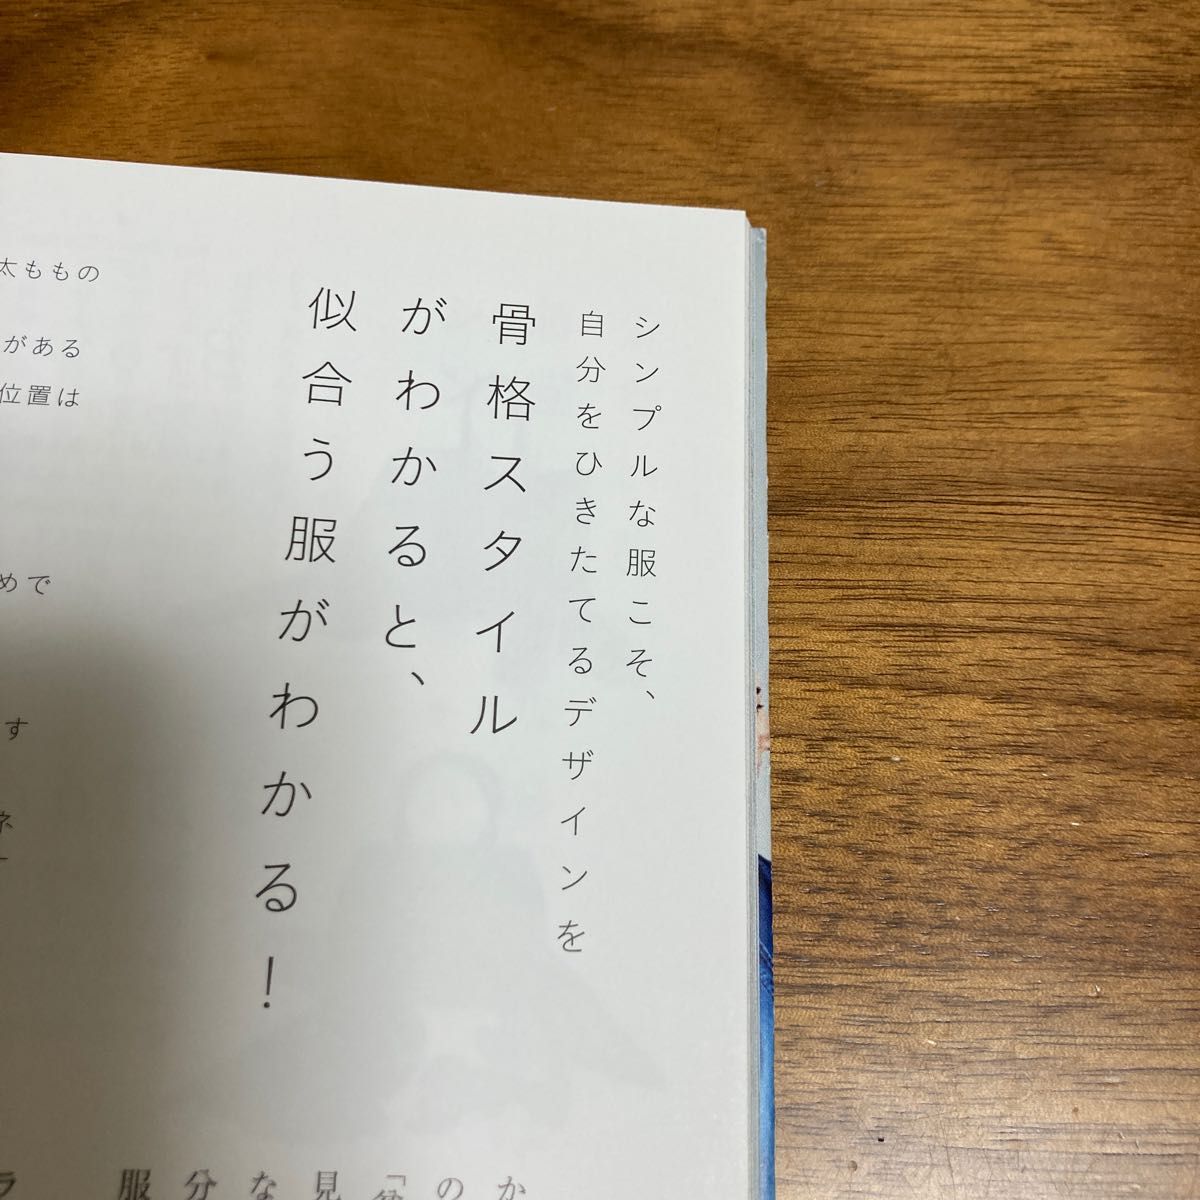 シンプルな服こそ、
自分をひきたてるデザインを
骨格スタイル
がわかると、
似合う服がわかる！
か
の
見
な
分
服
ラ
太ももの
がある
位置は
めで
す
ネ